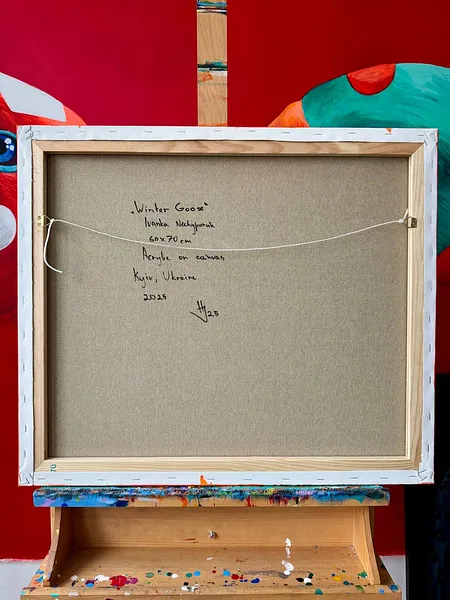 „Winter Goose“
Ivanka Nechyporuk
60x70 cm
Acrylic on canvas
Kyiv, Ukraine
2025
25
70